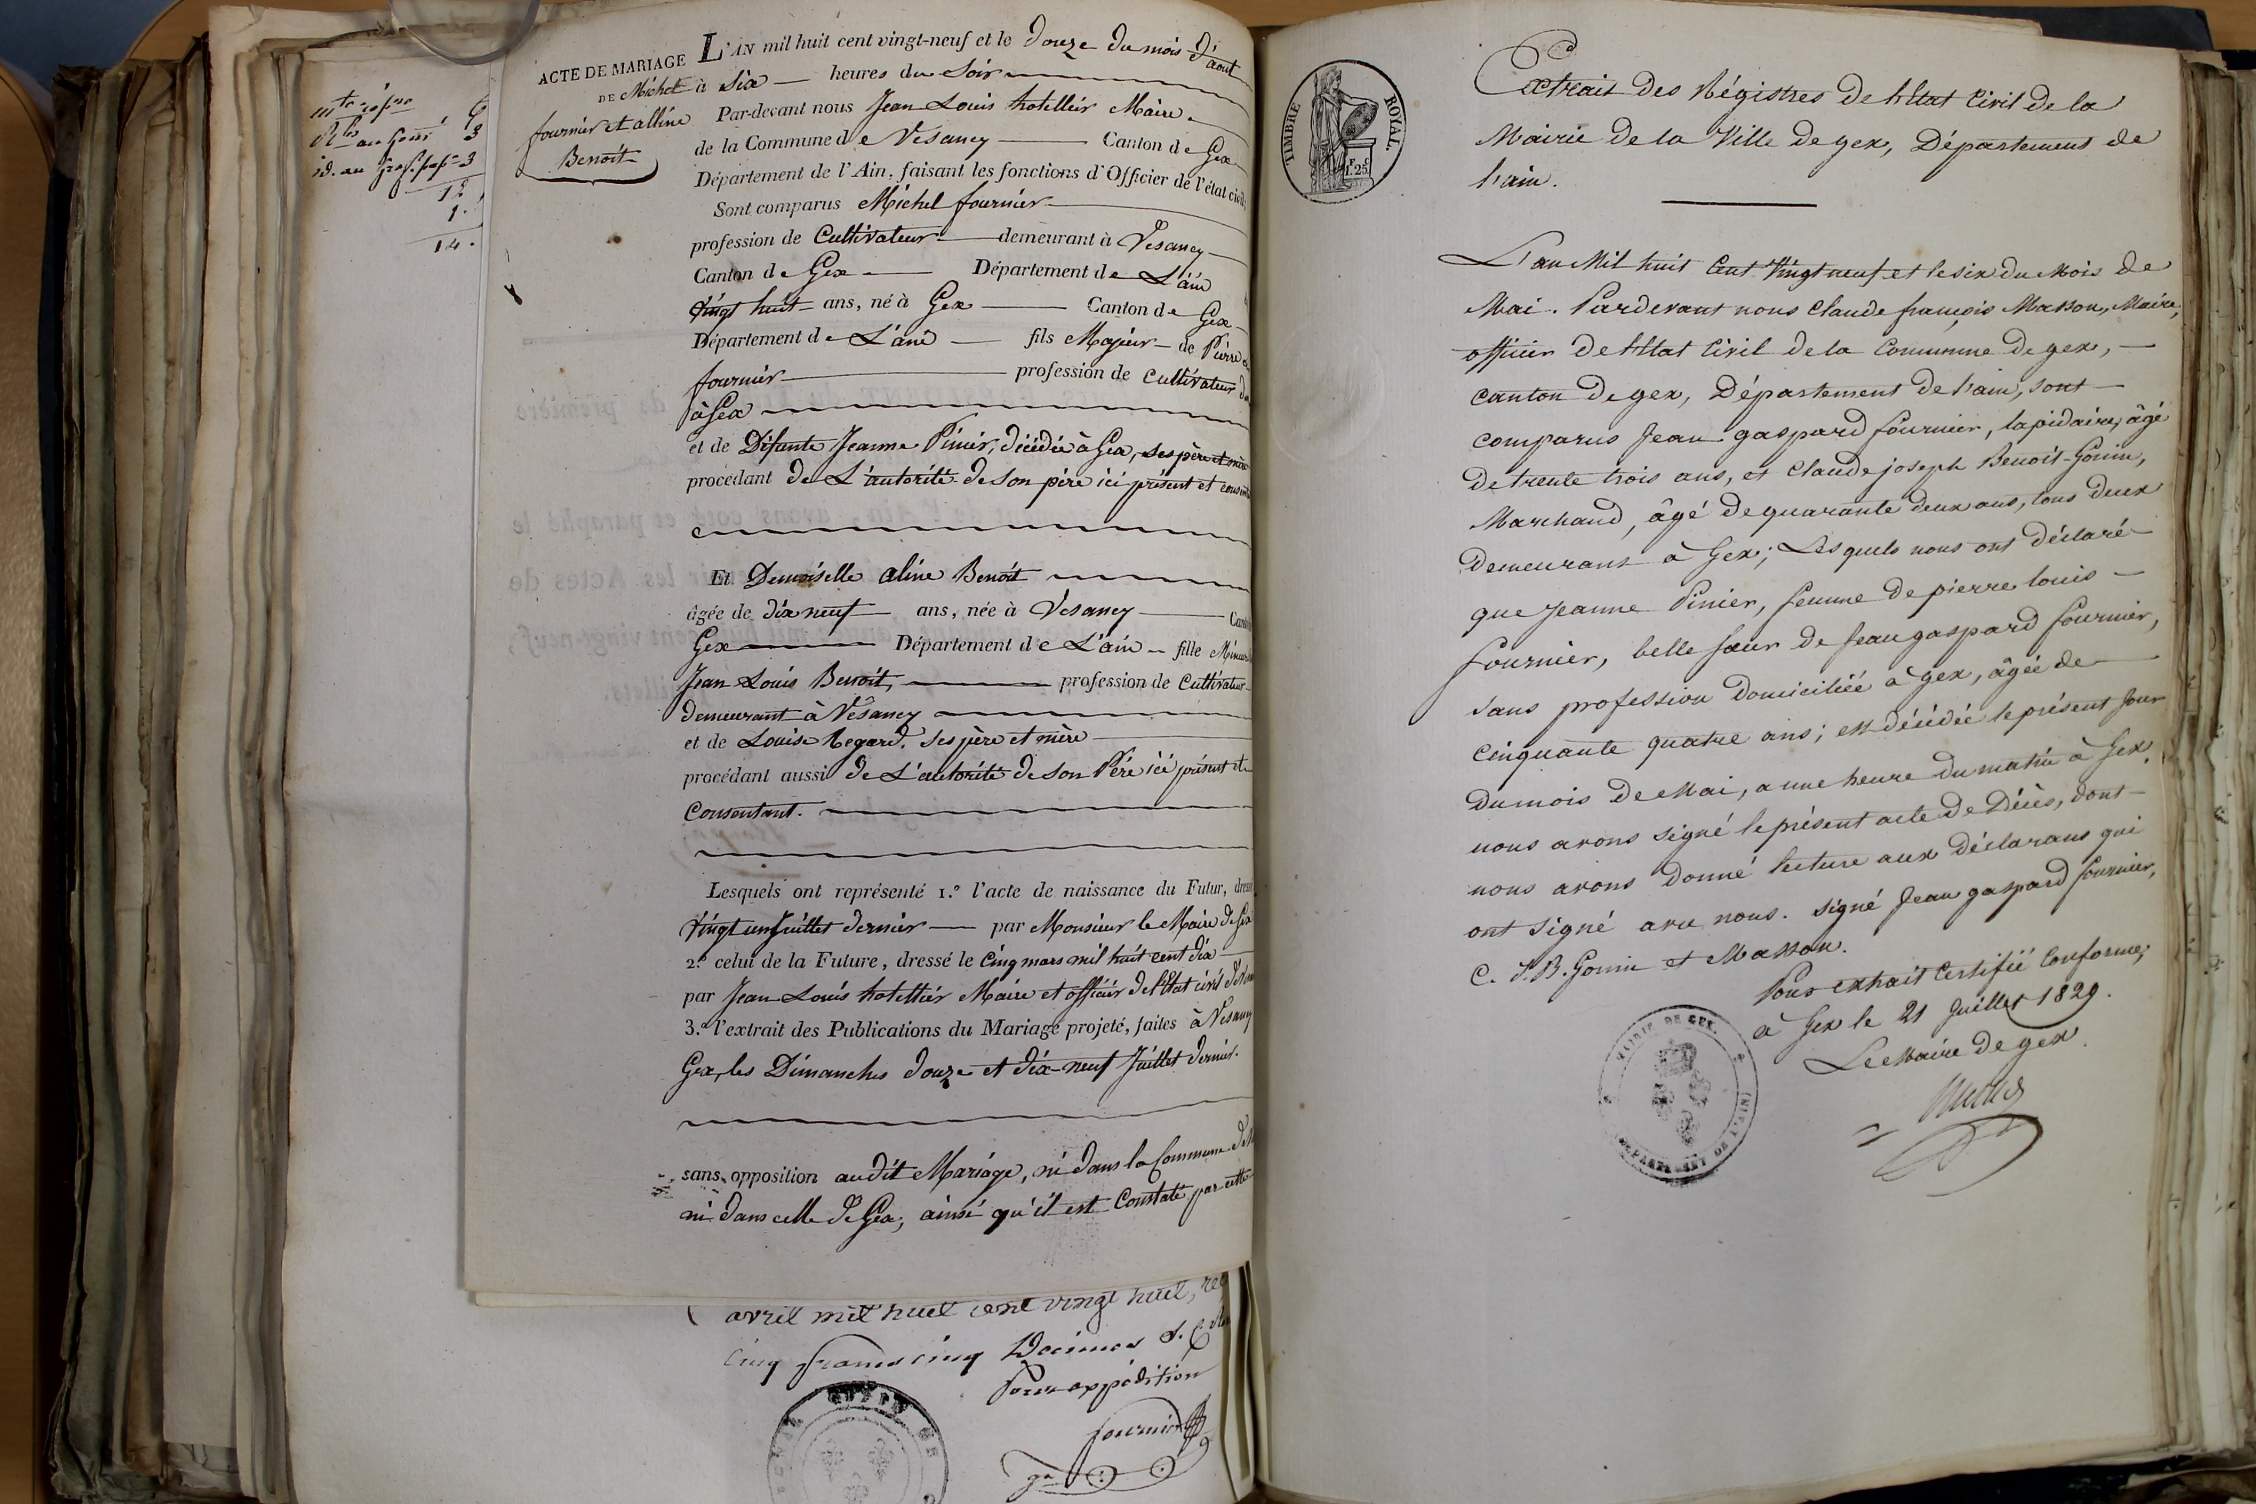 mte
au
id. au
3
3
12
1.
14.
ACTE DE MARIAGE
DE Michel
fournier et alline
Benoit
L'AN mil huit cent vingt-neuf et le douze du mois d'aout
à six heures du soir
Par-devant nous Jean Louis hotellier Maire
de la Commune de Vesancy Canton de Gex
Département de l'Ain, faisant les fonctions d'Officier de l'état civil,
Sont comparus Michel fournier
profession de Cultivateur demeurant à Vesancy
Canton de Gex Département de L'ain
vingt huit ans, né à Gex Canton de Gex
Département de L'ain fils Majeur de Pierre
fournier profession de cultivateur
à Gex
et de Défunte Jeanne Pinier, décédée à Gex, ses père et mère
procédant de L'autorité de son père ici présent et
Et Demoiselle aline Benoit
âgée de dix neuf ans, née à Vesancy
Gex Département de L'ain fille
Jean Louis Benoit, profession de Cultivateur
demeurant à Vesancy
et de Louise Regard, ses père et mère
procédant aussi de L'autorité de son Père ici présent et
Consentant.
Lesquels ont représenté 1.º l'acte de naissance du Futur,
vingt un Juillet dernier par Monsieur le Maire de Gex
2.º celui de la Future, dressé le Cinq mars mil huit cent dix
par Jean Louis hotellier Maire et officier de l'Etat civil
3.º l'extrait des Publications du Mariage projeté, faites à Vesancy
Gex, les Dimanches douze et dix-neuf Juillet dernier.
sans opposition audit Mariage, ni dans la Commune de
ni dans celle de Gex, ainsi qu'il est Constaté par cette
avril mil huit cent vingt huit,
Cinq francs cinq Decimes
Pour expédition
fournier
TIMBRE ROYAL.
1.25
Extrait des Régistres de l'Etat Civil de la
Mairie de la Ville de gex, Département de
l'ain.
L'an Mil huit Cent Vingt neuf et le six du Mois de
Mai. Pardevant nous Claude françois Masson, Maire,
officier de l'Etat Civil de la Commune de gex,
canton de gex, Département de l'ain, sont
comparus Jean gaspard fournier, lapidaire, âgé
de trente trois ans, et Claude joseph Benoit-Gonin,
Marchand, âgé de quarante deux ans, tous deux
demeurans à Gex; Lesquels nous ont déclaré
que Jeanne Pinier, femme de pierre louis
fournier, belle sœur de Jean gaspard fournier,
sans profession Domiciliée à gex, âgée de
cinquante quatre ans; est décédée le présent jour
du mois de Mai, a une heure du matin à Gex.
nous avons signé le présent acte de Décès, dont
nous avons donné lecture aux déclarans qui
ont signé avec nous. signé Jean gaspard fournier,
C. J. B. Gonin et Masson.
Pour extrait Certifié Conforme,
à Gex le 21 Juillet 1829.
Le Maire de gex.
MAIRIE DE GEX.
DÉPARTEMENT DE L'AIN